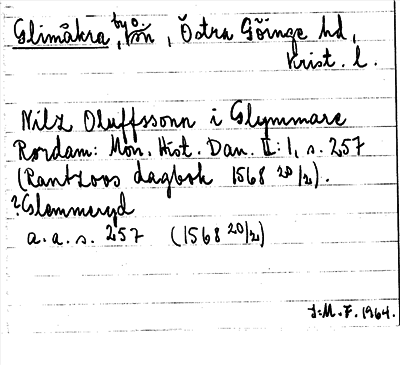 Glimåkra, by o. sn, Östra Göinge hd,
Krist. l.
Nilz Oluffssonn i Glymmare
Rördam: Mon. Hist. Dan. II:1, s. 257
(Rantzovs dagbok 1568 20/2).
?Glemmeryd
a. a. s. 257 (1568 20/2)
J.M.F. 1964.